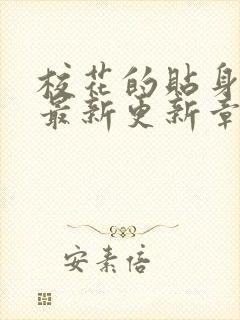 校花的贴身
最新更新章
安素倍